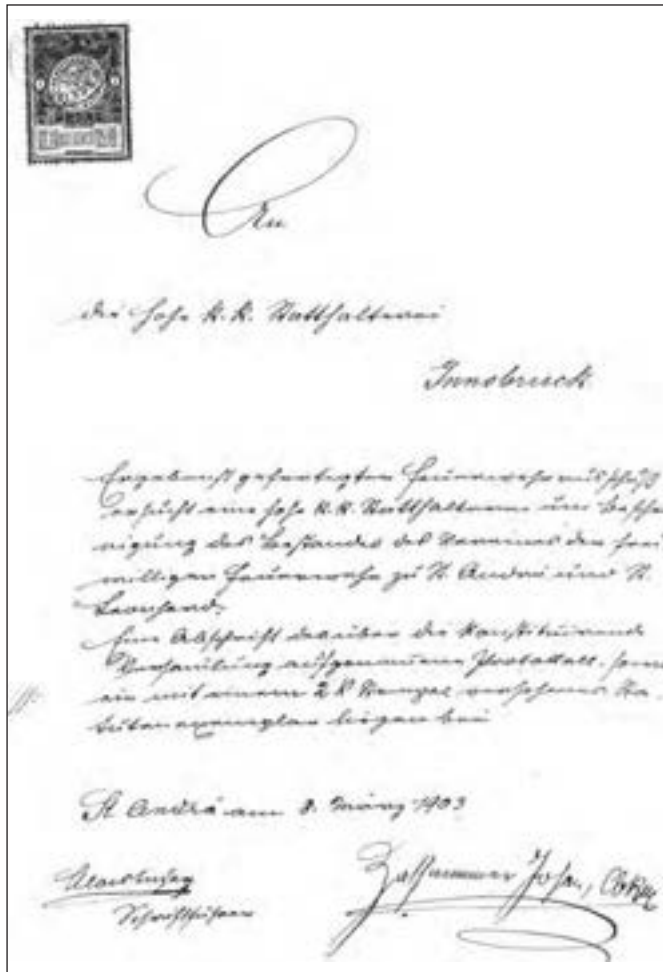 An
die hohe k. k. Statthalterei
Innsbruck
Ergebenst gefertigter Feuerwehrausschuß
ersucht eine hohe k. k. Statthalterei um Beschei
nigung des Bestandes des Vereines der frei
willigen Feuerwehr zu St. Andrä und St.
Leonhard.
Eine Abschrift des über die konstituirende
aufgenommene Protokoll, sowie
ein mit einem 2 K Stempel versehenes Sta
tutenexemplar liegen bei
St. Andrä am 8. März 1903
Schriftführer
Joh.,